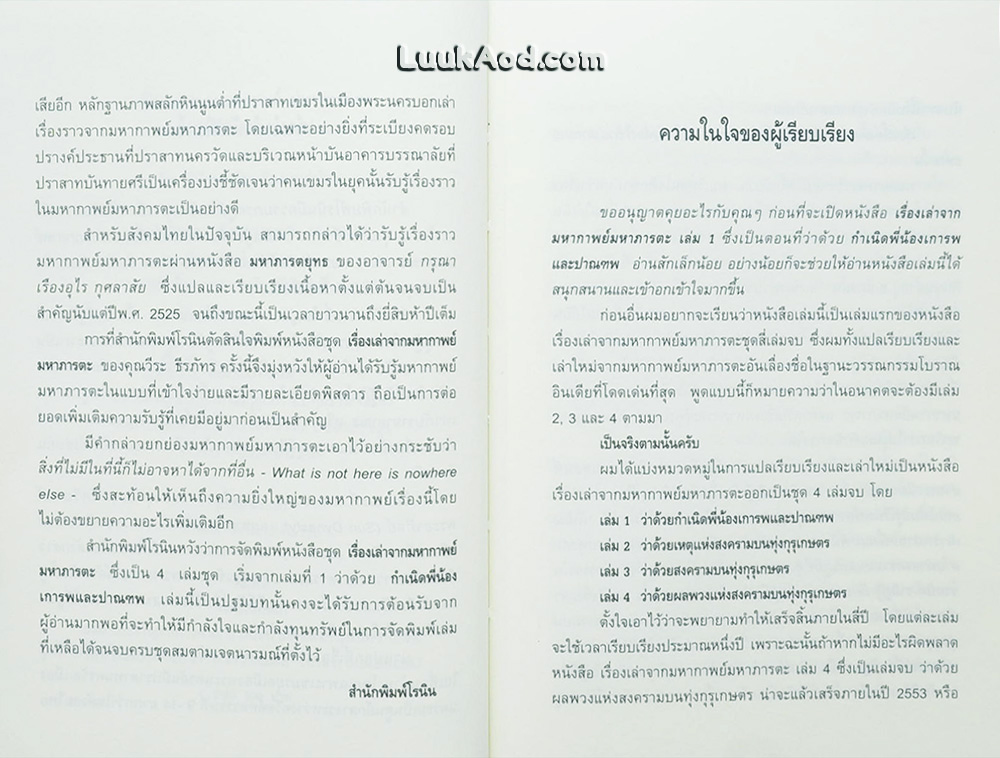 LuukAod.com
เสียอีก หลักฐานภาพสลักหินนูนต่ำที่ปราสาทเขมรในเมืองพระนครบอกเล่า
เรื่องราวจากมหากาพย์มหาภารตะ โดยเฉพาะอย่างยิ่งที่ระเบียงคดรอบ
ปรางค์ประธานที่ปราสาทนครวัดและบริเวณหน้าบันอาคารบรรณาลัยที่
ปราสาทบันทายศรีเป็นเครื่องบ่งชี้ชัดเจนว่าคนเขมรในยุคนั้นรับรู้เรื่องราว
ในมหากาพย์มหาภารตะเป็นอย่างดี
สำหรับสังคมไทยในปัจจุบัน สามารถกล่าวได้ว่ารับรู้เรื่องราว
มหากาพย์มหาภารตะผ่านหนังสือ มหาภารตยุทธ ของอาจารย์ กรุณา
เรืองอุไร กุศลาสัย ซึ่งแปลและเรียบเรียงเนื้อหาตั้งแต่ต้นจนจบเป็น
สำคัญนับแต่ปีพ.ศ. 2525 จนถึงขณะนี้เป็นเวลายาวนานถึงยี่สิบห้าปีเต็ม
การที่สำนักพิมพ์โรนินตัดสินใจพิมพ์หนังสือชุด เรื่องเล่าจากมหากาพย์
มหาภารตะ ของคุณวีระ ธีรภัทร ครั้งนี้จึงมุ่งหวังให้ผู้อ่านได้รับรู้มหากาพย์
มหาภารตะในแบบที่เข้าใจง่ายและมีรายละเอียดพิสดาร ถือเป็นการต่อ
ยอดเพิ่มเติมความรับรู้ที่เคยมีอยู่มาก่อนเป็นสำคัญ
มีคำกล่าวยกย่องมหากาพย์มหาภารตะเอาไว้อย่างกระชับว่า
สิ่งที่ไม่มีในที่นี้ก็ไม่อาจหาได้จากที่อื่น - What is not here is nowhere
else - ซึ่งสะท้อนให้เห็นถึงความยิ่งใหญ่ของมหากาพย์เรื่องนี้โดย
ไม่ต้องขยายความอะไรเพิ่มเติมอีก
สำนักพิมพ์โรนินหวังว่าการจัดพิมพ์หนังสือชุด เรื่องเล่าจากมหากาพย์
มหาภารตะ ซึ่งเป็น 4 เล่มชุด เริ่มจากเล่มที่ 1 ว่าด้วย กำเนิดพี่น้อง
เการพและปาณฑพ เล่มนี้เป็นปฐมบทนั้นคงจะได้รับการต้อนรับจาก
ผู้อ่านมากพอที่จะทำให้มีกำลังใจและกำลังทุนทรัพย์ในการจัดพิมพ์เล่ม
ที่เหลือได้จนจบครบชุดสมตามเจตนารมณ์ที่ตั้งไว้
สำนักพิมพ์โรนิน
ความในใจของผู้เรียบเรียง
ขออนุญาตคุยอะไรกับคุณๆ ก่อนที่จะเปิดหนังสือ เรื่องเล่าจาก
มหากาพย์มหาภารตะ เล่ม 1 ซึ่งเป็นตอนที่ว่าด้วย กำเนิดพี่น้องเการพ
และปาณฑพ อ่านสักเล็กน้อย อย่างน้อยก็จะช่วยให้อ่านหนังสือเล่มนี้ได้
สนุกสนานและเข้าอกเข้าใจมากขึ้น
ก่อนอื่นผมอยากจะเรียนว่าหนังสือเล่มนี้เป็นเล่มแรกของหนังสือ
เรื่องเล่าจากมหากาพย์มหาภารตะชุดสี่เล่มจบ ซึ่งผมทั้งแปลเรียบเรียงและ
เล่าใหม่จากมหากาพย์มหาภารตะอันเลื่องชื่อในฐานะวรรณกรรมโบราณ
อินเดียที่โดดเด่นที่สุด พูดแบบนี้ก็หมายความว่าในอนาคตจะต้องมีเล่ม
2, 3 และ 4 ตามมา
เป็นจริงตามนั้นครับ
ผมได้แบ่งหมวดหมู่ในการแปลเรียบเรียงและเล่าใหม่เป็นหนังสือ
เรื่องเล่าจากมหากาพย์มหาภารตะออกเป็นชุด 4 เล่มจบ โดย
เล่ม 1 ว่าด้วยกำเนิดพี่น้องเการพและปาณฑพ
เล่ม 2 ว่าด้วยเหตุแห่งสงครามบนทุ่งกุรุเกษตร
เล่ม 3 ว่าด้วยสงครามบนทุ่งกุรุเกษตร
เล่ม 4 ว่าด้วยผลพวงแห่งสงครามบนทุ่งกุรุเกษตร
ตั้งใจเอาไว้ว่าจะพยายามทำให้เสร็จสิ้นภายในสี่ปี โดยแต่ละเล่ม
จะใช้เวลาเรียบเรียงประมาณหนึ่งปี เพราะฉะนั้นถ้าหากไม่มีอะไรผิดพลาด
หนังสือ เรื่องเล่าจากมหากาพย์มหาภารตะ เล่ม 4 ซึ่งเป็นเล่มจบ ว่าด้วย
ผลพวงแห่งสงครามบนทุ่งกุรุเกษตร น่าจะแล้วเสร็จภายในปี 2553 หรือ